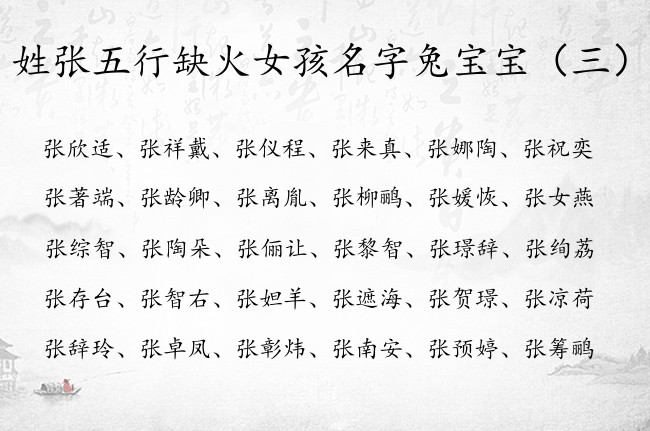 姓张五行缺火女孩名字兔宝宝（三）
张欣适、张祥戴、张仪程、张来真、张娜陶、张祝奕
张著端、张龄卿、张离胤、张柳鹂、张媛恢、张女燕
张综智、张陶朵、张俪让、张黎智、张璟辞、张绚荔
张存台、张智右、张妲羊、张遮海、张贺璟、张凉荷
张辞玲、张卓凤、张彰炜、张南安、张预婷、张筹鹂